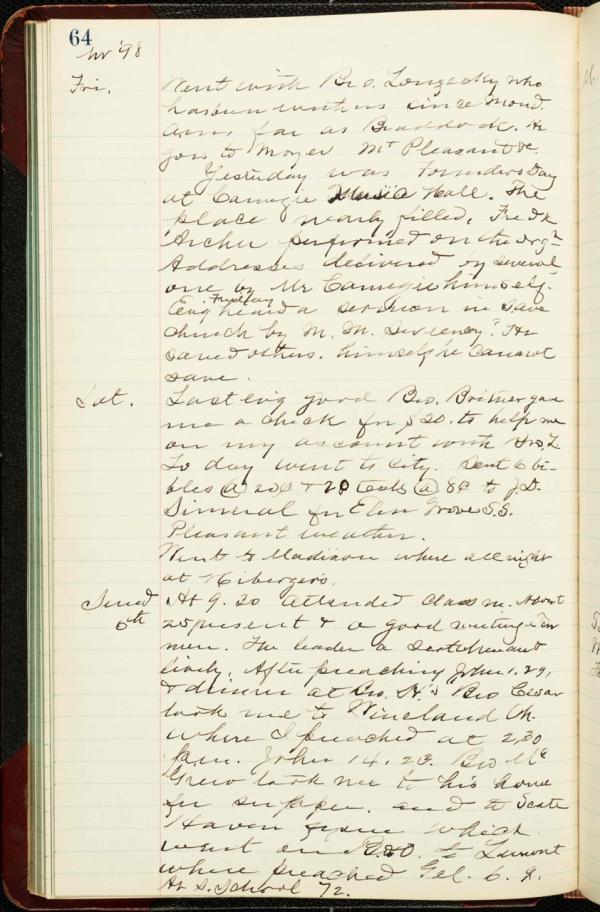 64
Nov '98
Fri. Went with Bro. Longecky who
has been with us since Mond.
as far as Braddock. He
goes to Moyer Mt Pleasant &c.
Yesterday was Founders Day
at Carnegie Music Hall. The
place nearly filled, Fredk
Archer performed on the orgn
Addresses delivered by several
one by Mr Carnegie himself.
Evg heard a sermon in same
church by M. M. Sweeney "He
saved others, himself he cannot
save.
Sat. Last evg good Bro. Britner gave
me a check for $20. to help me
on my account with
To day went to city. Sent 6 bi-
bles @ 20¢ + 20 Tests @ 8¢ to J.D.
Simeral for Elm Grove S.S.
Pleasant weather.
Went to Madison where all night
at Hibergers.
Sund 6th At 9.30 attended class m. About
25 present & a good meeting
men. The leader a
lively. After preaching John 1.29,
& dinner at Bro. H.'s Bro Cesar
took me to Wineland Ch.
where I preached at 2,30
p.m. John 14. 23. Bro Mc
Grew took me to his home
for supper. and to Scott
Haven from which
went on to
where preached Gal. 6. 9.
At S. School 72.